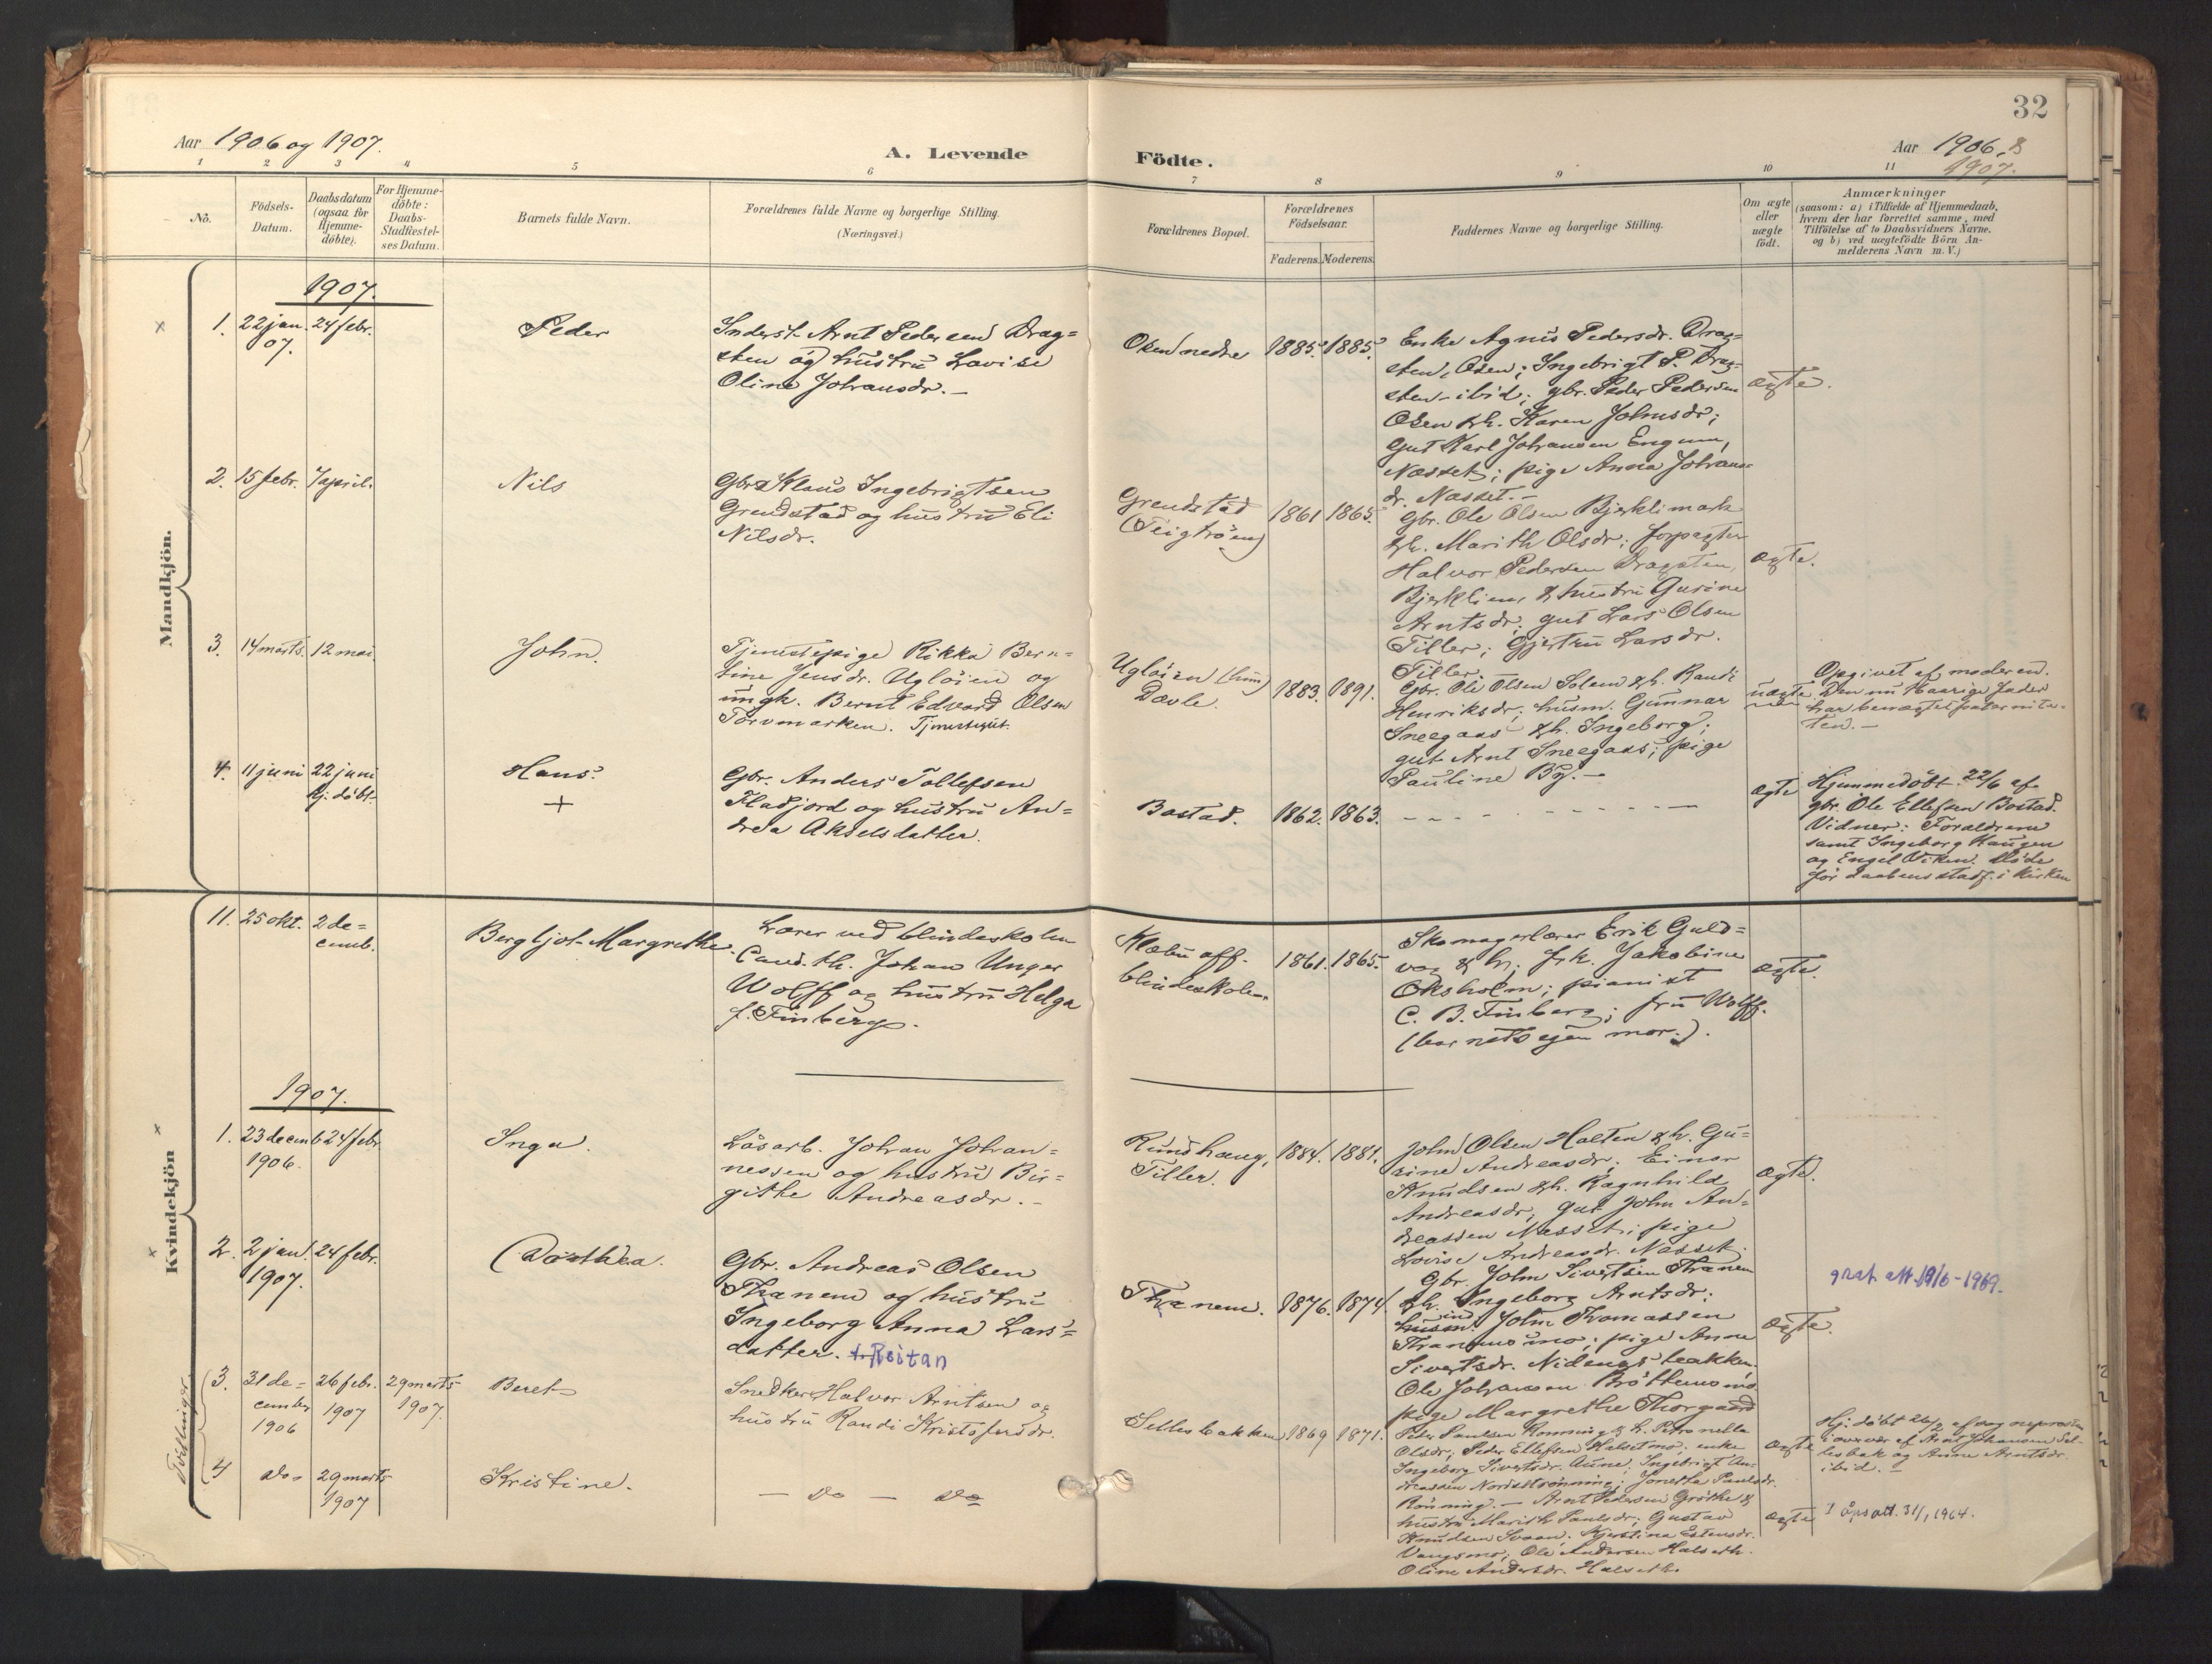 32
Aar 1906 og 1907.
A. Levende
Födte.
Aar 1906 &
1907.
1 2 3 4 5 6 7 8 9 10 11
No.
Födsels-
Datum.
Daabsdatum
(ogsaa for
Hjemme-
döbte).
For Hjemme-
döbte:
Daabs-
Stadfæstel-
ses Datum.
Barnets fulde Navn.
Forældrenes fulde Navne og borgerlige Stilling.
(Næringsvei.)
Forældrenes Bopæl.
Forældrenes
Födselsaar.
Faderens. Moderens.
Faddernes Navne og borgerlige Stilling.
Om ægte
eller
uægte
födt.
Anmærkninger
(saasom: a) i Tilfælde af Hjemmedaab,
hvem der har forrettet samme, med
Tilföielse af to Daabsvidners Navne.
og b) ved uægtefödte Börn An-
melderens Navn m.V.)
Mandkjön.
1907.
1. 22 jan. 07. 24 febr.
Peder
Inderst Arnt Pedersen Drag=
sten og hustru Lovise
Oline Johansdr. –
Osen nedre 1885. 1885.
Enke Agnis Pedersdr. Drag=
sten, Osen; Ingebrigt P. Drag=
sten – ibid; gbr. Peder Pedersen
Osen & h. Karen Johnsdr;
gut Karl Johansen Engum,
Næsset; pige Anna Johans
dr. Næsset. –
ægte.
2. 15 febr. 7 april.
Nils
Gbr. Klaus Ingebrigtsen
Grendstad og hustru Eli
Nilsdr.
Grendstad
(Teigtröen) 1861 1865.
Gbr. Ole Olsen Bjerklimark
& h. Marith Olsdr; forpagter
Halvor Pedersen Dragsten,
Bjerklien, & hustru Gurine
Arntsdr; gut Lars Olsen
Tiller; Gjertru Larsdr.
Tiller.
ægte.
3. 14 marts. 12 mai.
John.
Tjenestepige Rikka Bern=
tine Jensdr. Uglöien og
ungk. Bernt Edvard Olsen
Torvmarken. Tjenestegut.
Uglöien (hun)
Dævle. 1883. 1891.
Gbr. Ole Olsen Solem & h. Randi
Henriksdr; husm. Gunnar
Sneegaas & h. Ingeborg;
gut Arnt Sneegaas; pige
Pauline By. –
uægte
Opgivet af moderen.
Den nu
har benægtet paternite-
ten. –
4. 11 juni 22 juni
hj. döbt.
Hans.
+
Gbr. Anders Tollefsen
Fladfjord og hustru An=
drea Akselsdatter.
Bostad. 1862. 1863.
ægte
Hjemmedöbt 22/6 af
gbr. Ole Ellefsen Bostad.
Vidner: Forældrene
samt Ingeborg Haugen
og Engel Viken. Döde
för daabens stadf. i kirken
Kvindekjön
11. 25 okt. 2 de=
cemb.
Bergljot Margrethe.
Lærer ved blindeskolen
Cand. th. Johan Unger
Wolff og hustru Helga
f. Finberg.
Klæbu off.
blindeskole. 1861. 1865.
Skomagerlærer Erik Guld=
vog & h; frk. Jakobine
Oksholm; pianist
C. B. Finberg; fru Wolff.
(barnets egen mor.).
ægte.
1907.
1. 23 decemb 1906. 24 febr.
Inga.
Lösarb. Johan Johan=
nessen og hustru Bir=
githe Andreasdr. –
Rundhaug,
Tiller. 1884. 1881.
John Olsen Halten & h. Gu=
rine Andreasdr; Einar
Knudsen & h. Ragnhild
Andreasdr; gut John An=
dreassen Næsset; pige
Lovise Andreasdr. Næsset.
ægte.
2. 2 jan. 1907. 24 febr.
Dorthea.
Gbr. Andreas Olsen
Thanem og hustru
Ingeborg Anna Lars=
datter. f. Reitan
Thanem. 1876. 1874.
Gbr. John Sivertsen Thanem
& h. Ingeborg Arntsdr;
ind John Thomassen
Thanemsmo; pige Anne
Sivertsdr. Nidengsbakken.
Ole Johansen Bröttemsmo
pige Margrethe Thorgaard
ægte.
grat. att. 19/6 – 1969.
Tvillinger.
3. 31 de=
cember
1906 26 febr.
1907 29 marts
1907.
Beret
Snedker Halvor Arntsen og
hustru Randi Kristofersdr.
Sellesbakken 1869 1871.
Peder Paulsen Rönning & h. Petronella
Olsdr; Peder Ellefsen Halsetmo; enke
Ingeborg Sivertsdr. Aune; Ingebrigt An=
dreassen Nordsetrönning; Jonetta Paulsdr.
Rönning. –
ægte
Hj. döbt 26/2 af sogneprösten
i overvær af Arnt Johansen Sel-
lesbak og Anne Arntsdr.
ibid. –
4 do. 29 marts
1907
Kristine.
– do – do
Arnt Pedersen Gröthe &
hustru Marith Paulsdr; Gustav
Knudsen Svaan; Kjerstina Estensdr.
Vangsmo; Ole Andersen Halseth.
Oline Andersdr. Halseth.
ægte
att. 31/1 1964.